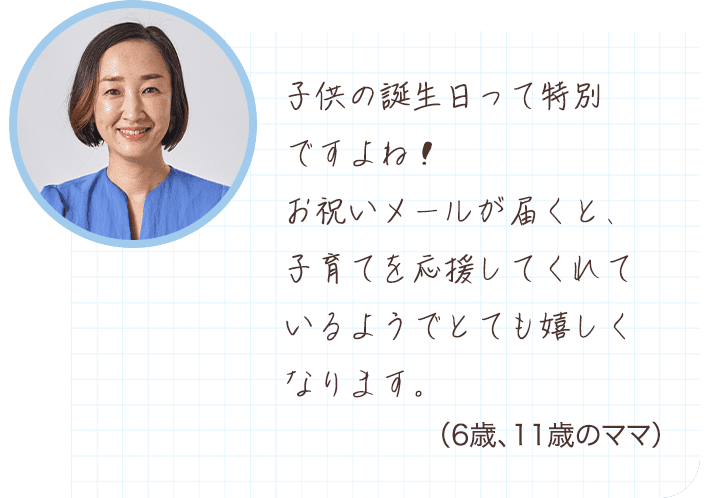 子供の誕生日って特別
ですよね！
お祝いメールが届くと、
子育てを応援してくれて
いるようでとても嬉しく
なります。
（6歳、11歳のママ）